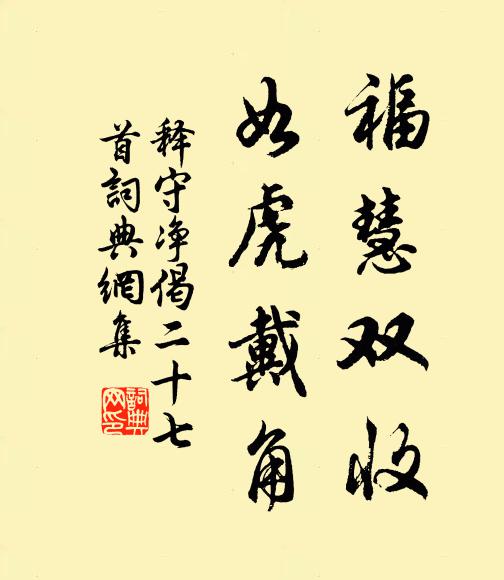 福慧双收
如虎戴角
释守净偈二十七
首詞典網集
詞典
网印